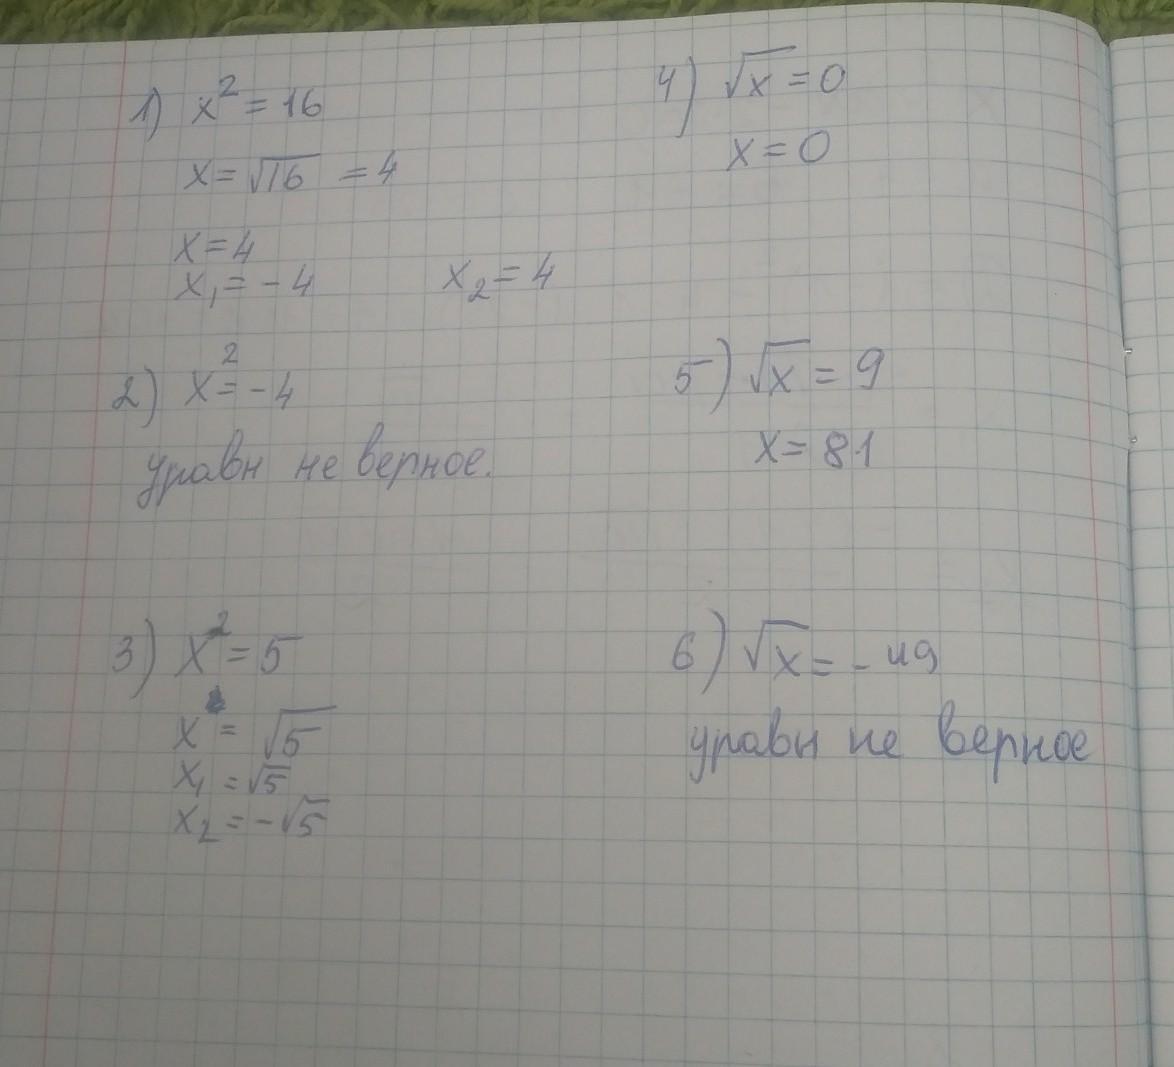 1) x² = 16
x = √16 = 4
x = 4
x₁ = - 4 x₂ = 4
2) x² = - 4
уравн не верное.
3) x² = 5
x = √5
x₁ = √5
x₂ = - √5
4) √x = 0
x = 0
5) √x = 9
x = 81
6) √x = - 49
уравн не верное